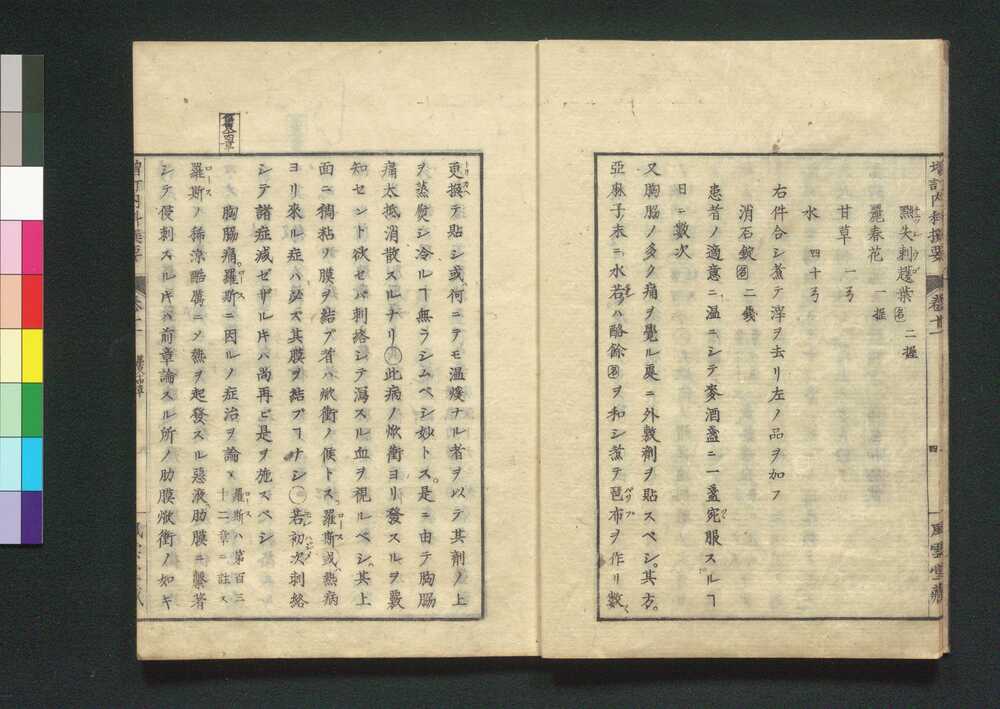 増訂内科撰要 卷十一 四 風雲堂藏
㸃失刺薘葉 二握
罌春花 一握
甘草 一弓
水 四十弓
右件合シ煮テ滓ヲ去リ左ノ品ヲ加フ
消石錠 二錢
患昔ノ適意ニ温ニシテ麥酒盞ニ一盞宛服スルヿ
日ニ數次
又胸脇ノ多ク痛ヲ覺ル更ニ外敷劑ヲ貼スベシ。其方。
亞麻子末ニ水若クハ酪餘ヲ和シ煮テ琶布ヲ作リ數
更換テ貼シ或何ニテモ温煖ナル者ヲ以テ其劑ノ上
ヲ蒸熨シ冷ルヿ無ラシムベシ妙トス。是ニ由テ胸脇
痛太抵消散スルナリ○此病ノ焮衝ヨリ發スルヲ覈
知セント欲セバ刺絡シテ瀉スル血ヲ視ルベシ。其上
面ニ稠粘ノ膜ヲ結ブ者ハ焮衝ノ候トス羅斯或熱病
ヨリ來ル症ハ必ズ其膜ヲ結ブヿナシ○若初次刺絡
シテ諸症減ゼザル𪜈ハ尚再ビ是ヲ施スベシ
胸脇痛。羅斯ニ因ルノ症治ヲ論ズ 羅斯ハ第百三
十二章ニ註ス
舊百四章
羅斯ノ稀涼酷厲ニメ熱ヲ起發スル惡液。肋膜ニ繫著
シテ侵刺スル𪜈ハ前章論スル所ノ肋膜焮衝ノ如キ
増訂内科撰要